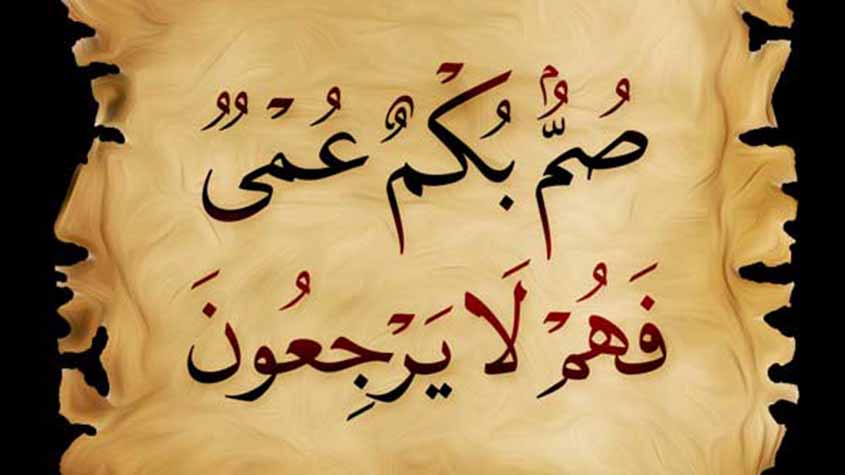 صُمُّۢ بُكْمٌ عُمْىٌ
فَهُمْ لَا يَرْجِعُونَ